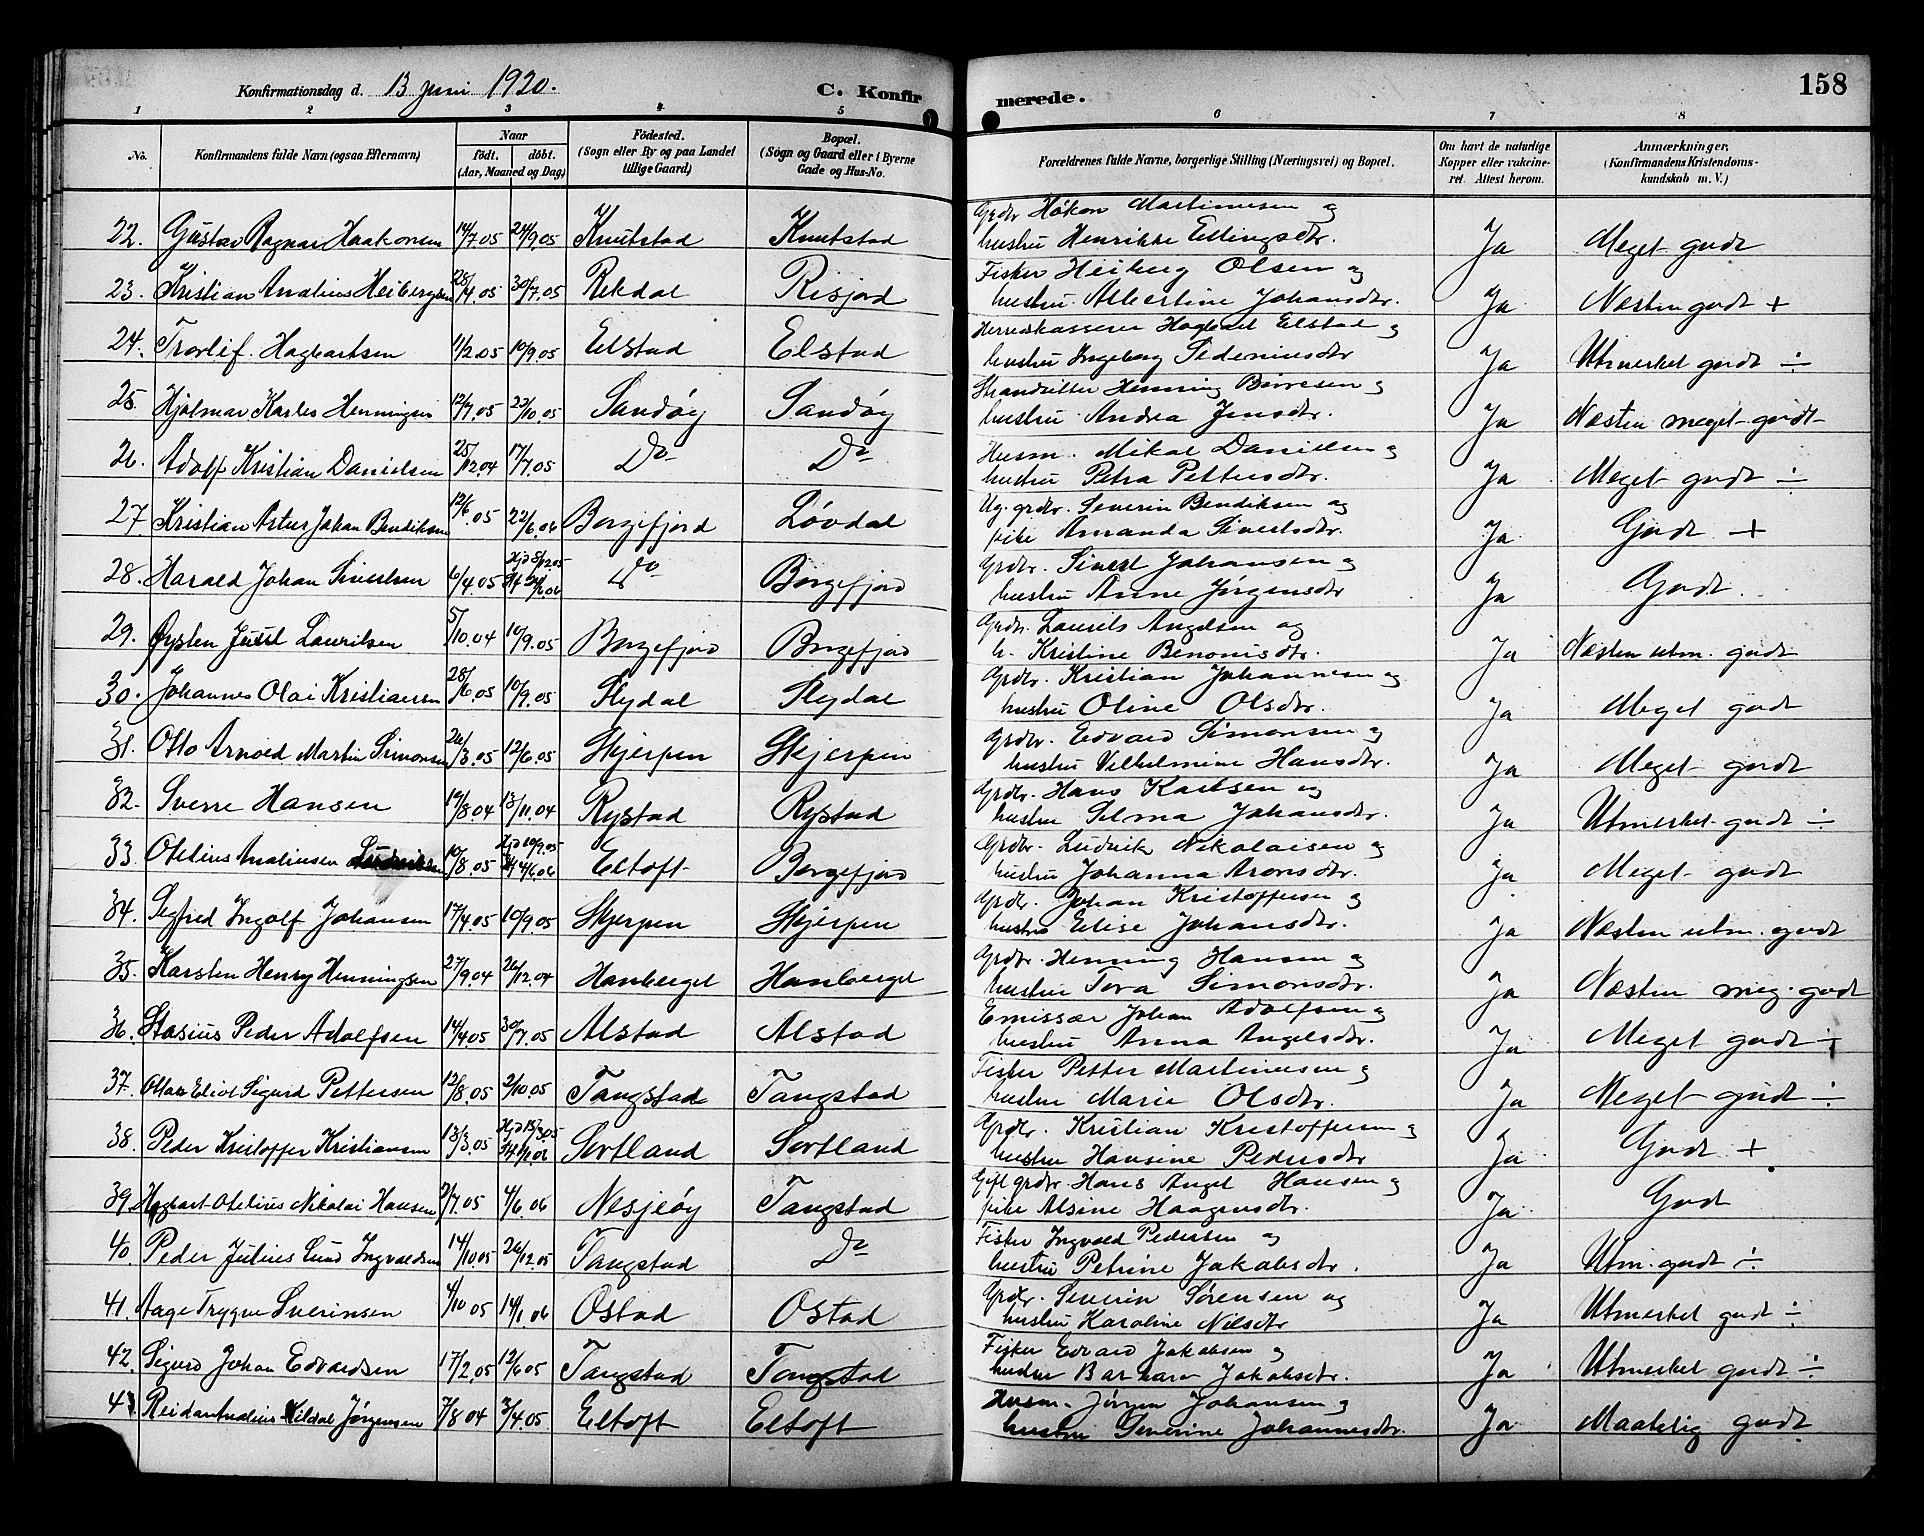 Konfirmationsdag d. 13 Juni 1920. C. Konfirmerede. 158
1 2 3 4 5 6 7 8
No. Konfirmandens fulde Navn (ogsaa Efternavn) Naar født. døbt. (Aar, Maaned og Dag) Fødested. (Sogn eller By og paa Landet tillige Gaard) Bopæl. (Sogn og Gaard eller i Byerne Gade og Hus-No. Forældrenes fulde Navne, borgerlige Stilling (Næringsvei) og Bopæl. Om havt de naturlige Kopper eller vakcineret. Attest herom. Anmærkninger. (Konfirmandens Kristendomskundskab m. V.)
22. Gustav Ragnar Haakonsen 14/7.05 24/9.05 Knutstad Knutstad Grdbr Håkon Martinusen og hustru Henrikke Ellingsdtr. Ja Meget godt
23. Kristian Analius Heibergsen 28/4.05 30/7.05 Rekdal Risjord Fisker Heiberg Olsen og hustru Albertine Johansdtr. Ja Næsten godt +
24. Torlif Hagbartsen 11/2.05 10/9.05 Elstad Elstad Herredskasserer Hagbart Elstad og hustru Ingeborg Sedeniusdtr Ja Utmerket godt ÷
25. Hjalmar Karles Henningsen 12/7.05 22/10.05 Sandøy Sandøy Strandsitter Henning Børresen og hustru Andrea Jensdtr. Ja Næsten meget godt
26. Adolf Kristian Danielsen 25/12.04 17/7.05 Do Do Husm. Mikal Danielsen og hustru Petra Pettersdtr. Ja Meget godt ÷
27. Kristian Artur Johan Bendiksen 12/6.05 22/6.06 Borgefjord Løvdal Ug. grdbr. Severin Bendiksen og pike Amanda Sivertsdtr. Ja Godt +
28. Harald Johan Sivertsen 6/4.05 Do Borgefjord Grdbr. Sivert Johansen og hustru Anne Jørgensdtr Ja Godt.
29. Øysten Juul Lauritsen 5/10.04 10/9.05 Borgefjord Borgefjord Grdbr. Laurits Angelsen og h. Kristine Benonisdtr. Ja Næsten utm. godt
30. Johannes Olai Kristiansen 28/6.05 10/9.05 Slydal Slydal Grdbr. Kristian Johannesen og hustru Oline Olsdtr. Ja Meget godt
31. Otto Arnold Martin Simonsen 26/3.05 12/6.05 Skjerpen Skjerpen Grdbr. Edvard Simonsen og hustru Vilhelmine Hansdtr. Ja Meget godt
32. Sverre Hansen 19/8.04 13/11.04 Rystad Rystad Grdbr. Hans Karlsen og hustru Selma Johansdtr. Ja Utmerket godt ÷
33. Otelius Analiusen Ludviksen 10/8.05 Hjd 10/9.05 Eltoft Borgefjord Grdbr. Ludvik Nikolaisen og hustru Johanna Aronsdtr. Ja Meget godt
34. Sigfred Ingolf Johansen 17/4.05 10/9.05 Skjerpen Skjerpen Grdbr. Johan Kristoffersen og hustru Elise Johansdtr. Ja Næsten utm. godt
35. Karsten Henry Henningsen 27/9.04 26/12.04 Hanberget Hanberget Grdbr. Henning Hansen og hustru Tora Simonsdtr. Ja Næsten meg. godt
36. Stasius Peder Adolfsen 14/4.05 30/7.05 Alstad Alstad Emissær Johan Adolfsen og hustru Anna Angelsdtr. Ja Meget godt ÷
37. Eliot Sigurd Pettersen 12/8.05 2/10.05 Tangstad Tangstad Fisker Petter Martinusen og hustru Marie Olsdtr. Ja Meget godt ÷
38. Peder Kristoffer Kristiansen 13/3.05 Sortland Sortland Grdbr. Kristian Kristoffersen og hustru Hansine Pedersdtr Ja Godt +
39. Hagbart Otelius Nikolai Hansen 2/7.05 4/6.06 Nesjeøy Tangstad Gift grdbr. Hans Angel Hansen og pike Alsine Haagensdtr. Ja Godt
40. Peder Julius Lund Ingvaldsen 14/10.05 26/12.05 Tangstad Do Fisker Ingvald Pedersen og hustru Petrine Jakobsdtr. Ja Utm. godt ÷
41. Aage Trygve Sverinsen 4/10 05 14/1.06 Ostad Ostad Grdbr. Severin Sørensen og hustru Karoline Nilsdtr Ja Utmerket godt ÷
42. Sigurd Johan Edvardsen 17/2.05 12/6 05 Tangstad Tangstad Fisker Edvard Jakobsen og hustru Barbara Jakobsdtr. Ja Utmerket godt ÷
43 Reidar Analius Vildal Jørgensen 7/8 04 3/4.05 Eltoft Eltoft Husm. Jørgen Johansen og hustru Severine Johannesdtr. Ja Maatelig godt